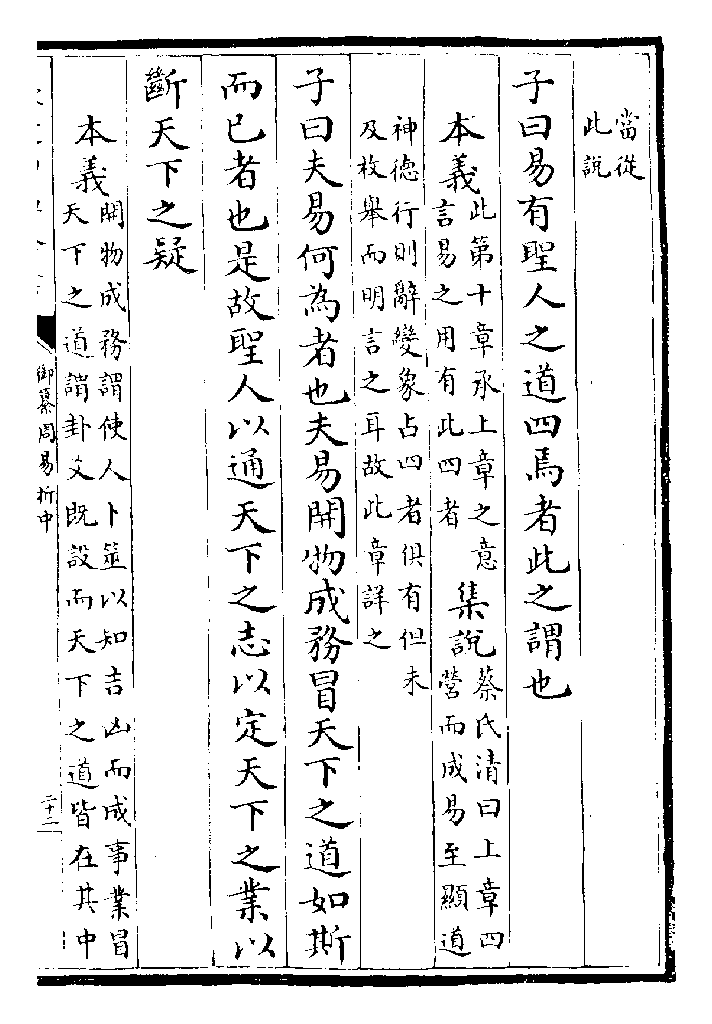 當從
此說
子曰易有聖人之道四焉者此之謂也
本義此第十章承上章之意
言易之用有此四者
集說蔡氏清曰上章四
營而成易至顯道
神德行則辭變象占四者俱有但未
及枚舉而明言之耳故此章詳之
子曰夫易何為者也夫易開物成務冒天下之道如斯
而已者也是故聖人以通天下之志以定天下之業以
斷天下之疑
本義開物成務謂使人卜筮以知吉凶而成事業冒
天下之道謂卦爻既設而天下之道皆在其中
御纂周易折中
二十二